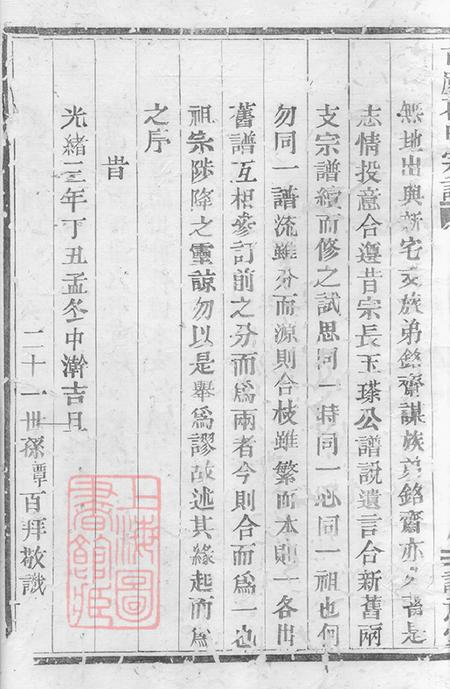 無地出與新宅支族弟銘齋謀族弟銘齋亦久蓄是
志情投意合遵昔宗長玉瑹公譜說遺言合新舊兩
支宗譜續而修之試思同一時同一心同一祖也何
勿同一譜流雖分而源則合枝雖繁而本則一各出
舊譜互相參訂前之分而爲兩者今則合而爲一也
祖宗陟降之靈諒勿以是舉爲謬故述其緣起而爲
之序
旹
光緒三年丁丑孟冬中澣吉旦
二十一世孫譚百拜敬識
上海圖書館藏